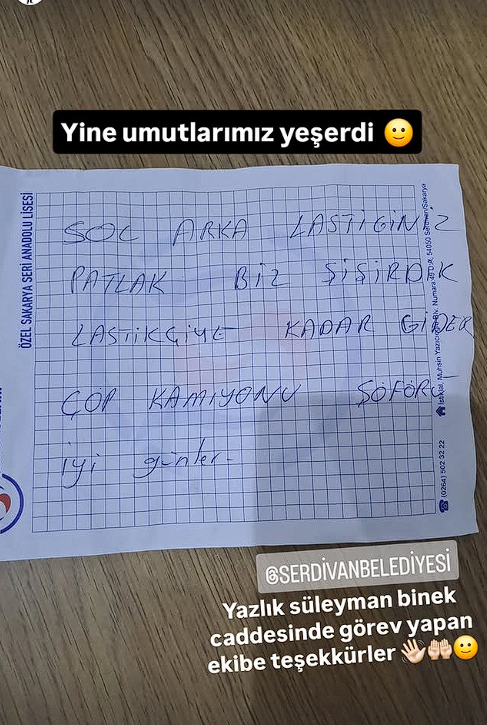 Yine umutlarımız yeşerdi 🙂
ÖZEL SAKARYA SERİ ANADOLU LİSESİ
SOL ARKA LASTİGİNİZ
PATLAK BİZ ŞİŞİRDİK
LASTİKÇİYE KADAR GİDER
ÇÖP KAMYONU ŞÖFÖRÜ
iyi günler.
(0264) 502 32 22
@SERDİVANBELEDİYESİ
Yazlık süleyman binek
caddesinde görev yapan
ekibe teşekkürler 👋🏻🤲🏻🙂